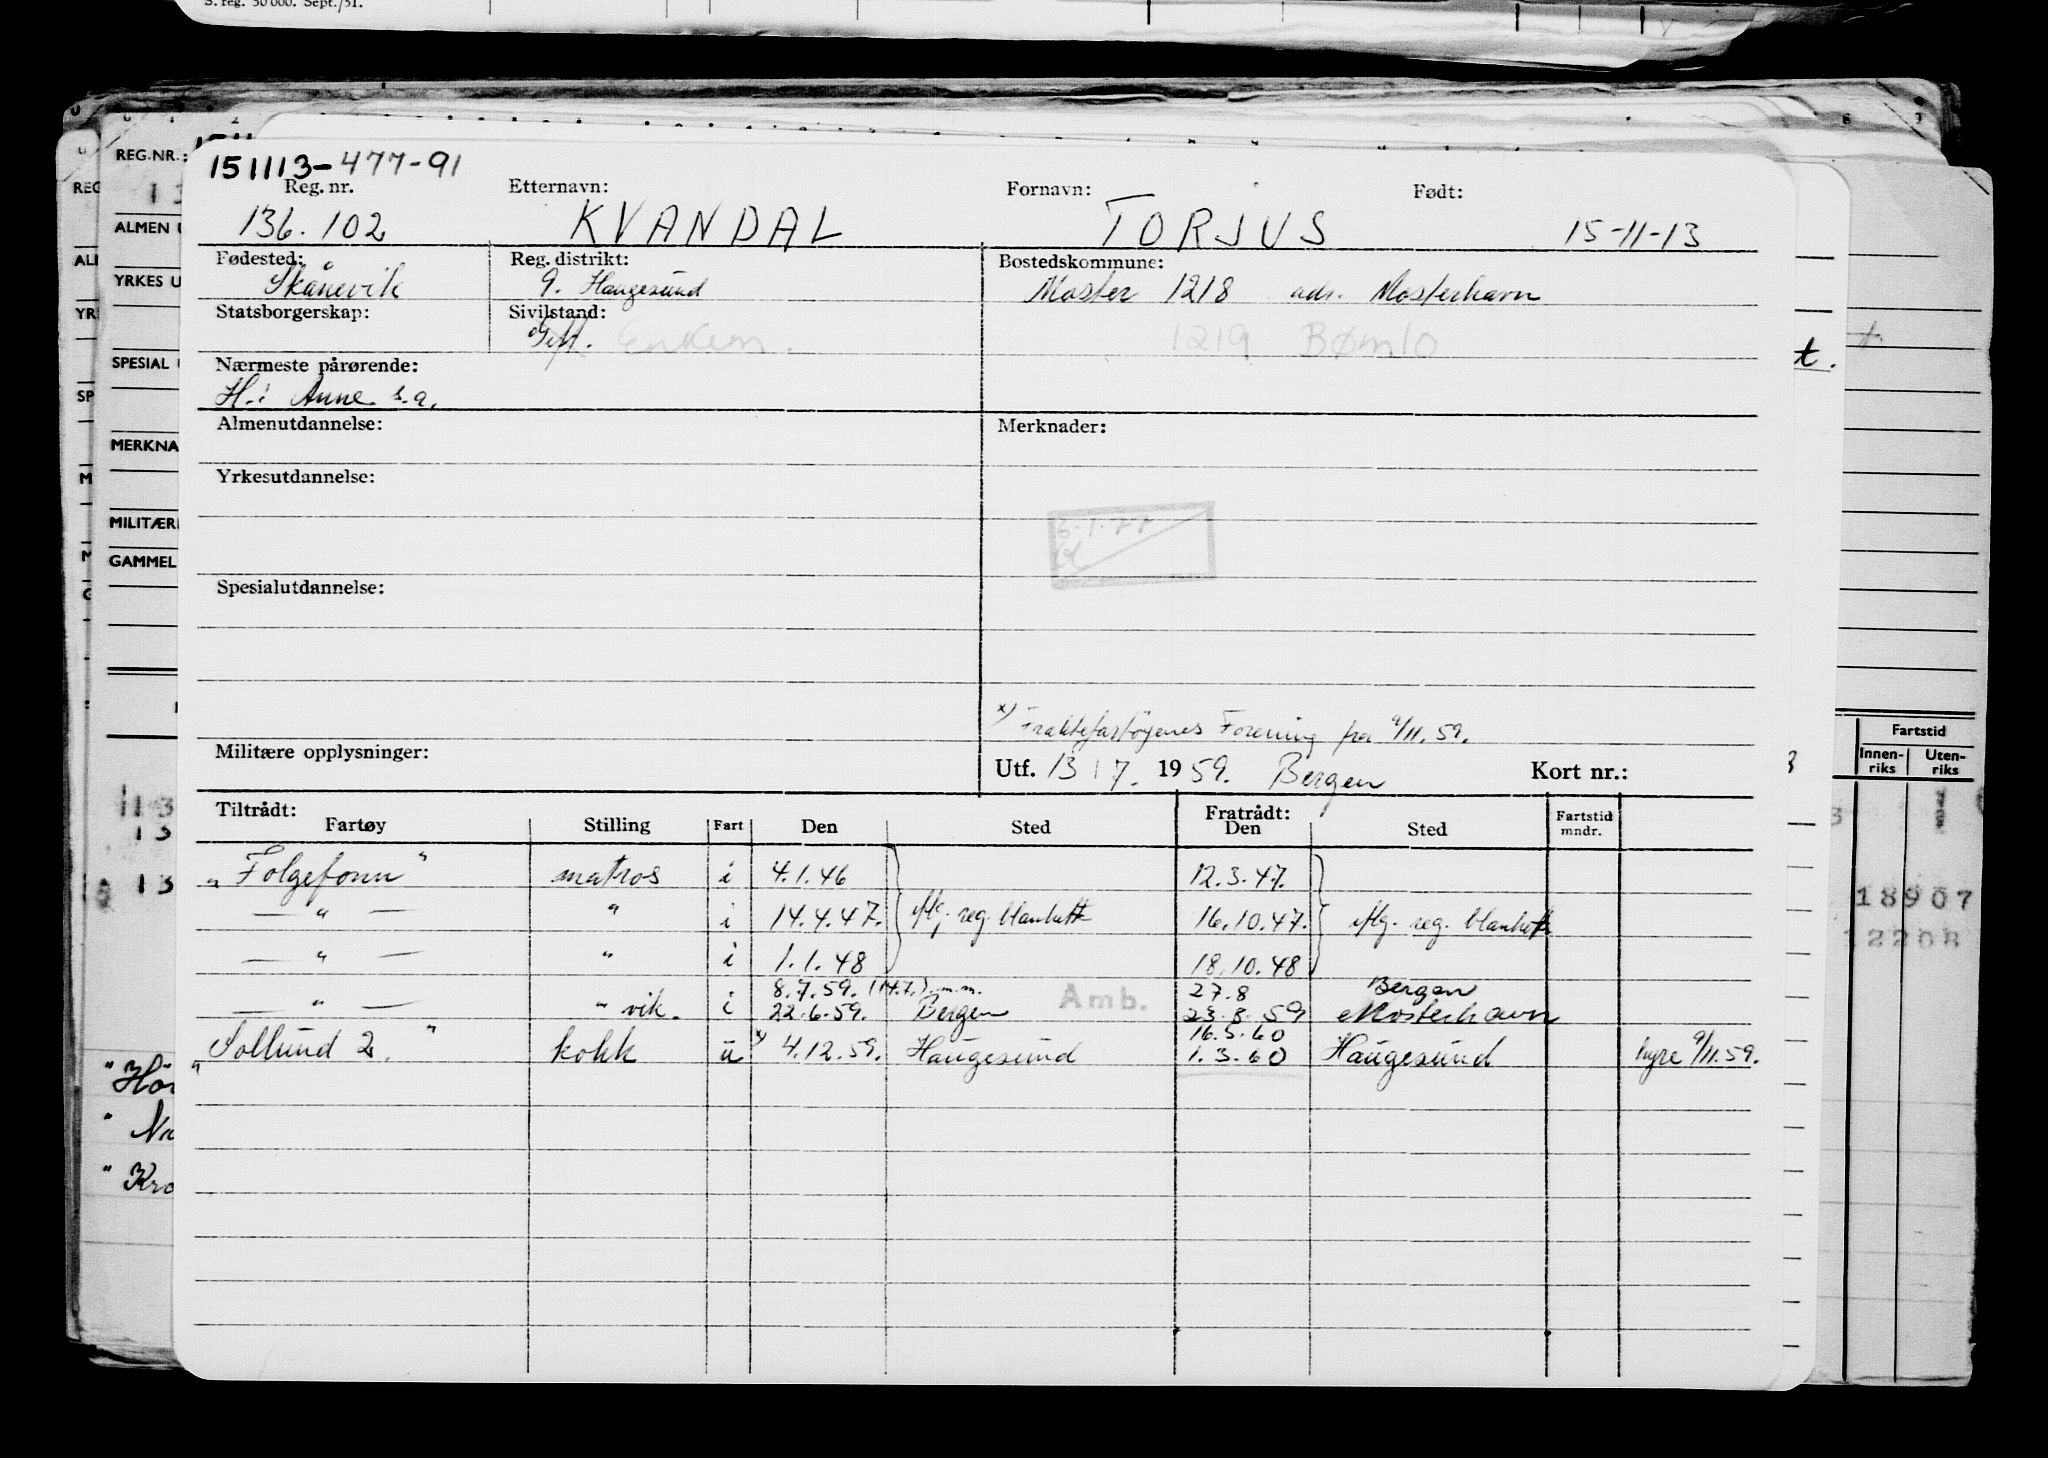 S. reg. 50 000. Sept./51.
REG.NR.:
ALMEN U
YRKES U
SPESIAL U
MERKNA
MILITÆR
GAMMEL
151113-477-91
Reg. nr. Etternavn: Fornavn: Født:
136.102 KVANDAL TORJUS 15-11-13
Fødested: Reg. distrikt: Bostedskommune:
Skånevik 9. Haugesund Moster 1218 adr. Mosterhavn
Statsborgerskap: Sivilstand:
Gift. Enkem. 1219 Bømlo
Nærmeste pårørende:
H.: Anne s.a.
Almenutdannelse: Merknader:
Yrkesutdannelse:
6.1.77
Spesialutdannelse:
x) Fraktefartøyenes Forening fra 9/11.59.
Militære opplysninger: Utf. 13/7. 1959. Bergen Kort nr.:
Tiltrådt: Fratrådt:
Fartøy Stilling Fart Den Sted Den Sted Fartstid mndr.
"Folgefonn" matros i 4.1.46 12.3.47.
— " — " i 14.4.47. iflg. reg. blankett 16.10.47. iflg. reg. blankett
— " — " i 1.1.48 18.10.48
8.7.59. (14.7.) m.m. 27.8 Bergen
— " — " vik. i 22.6.59. Bergen Amb. 23.8.59 Mosterhavn
16.5.60
"Sollund 2." kokk u x) 4.12.59. Haugesund 1.3.60 Haugesund hyre 9/11.59.
Fartstid
Innen-riks Uten-riks
18907
12208
"Hör
" Na
" Kro